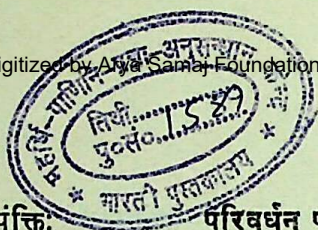 Digitized by Arya Samaj Foundation
महर्षि-पाणिनि-
-अनुसन्धान
तिथी
पु०सं० 1589
भारती पुस्तकालय
परिवर्धन